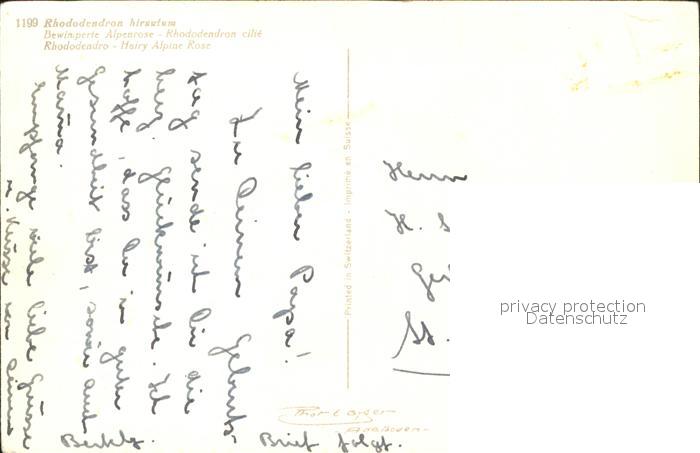 1199 Rhododendron hirsutum
Bewimperte Alpenrose - Rhododendron cilié
Rhododendro - Hairy Alpine Rose
Mein lieber Papa!
Zu Deinem Geburts-
tag sende ich Dir die
herz. Glückwünsche. Ich
hoffe, dass Du in guter
Gesundheit bist, sowie auch
Mama.
Empfange viele liebe Grüsse
u. Küsse von Deinem
Brief folgt.
Printed in Switzerland - Imprimé en Suisse
Herrn
H. S
St.
privacy protection
Datenschutz